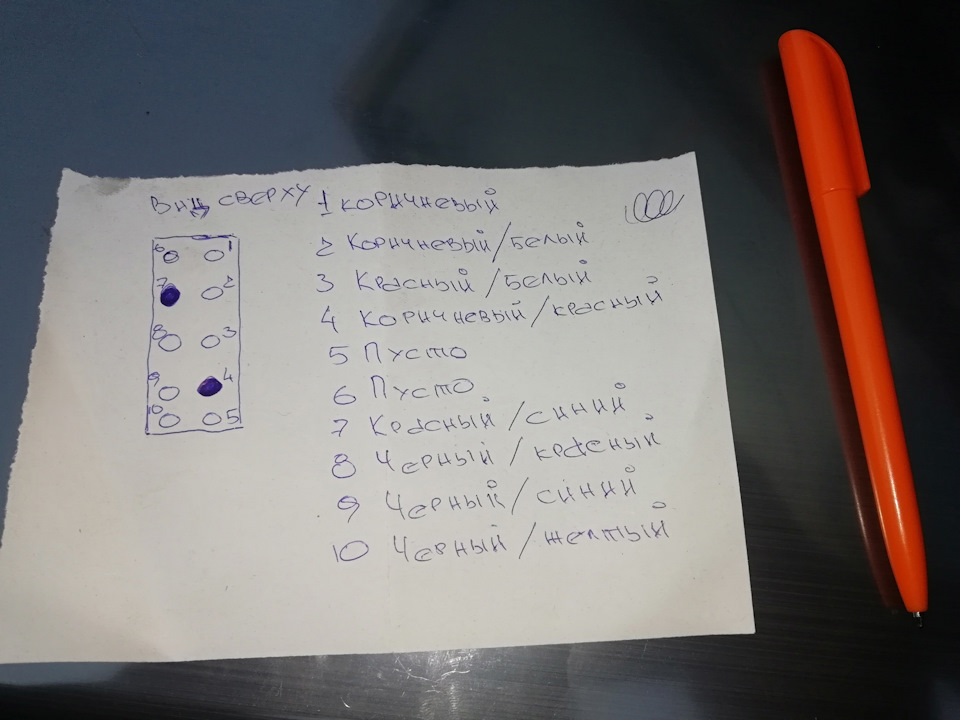 Вид сверху
6 1
7 2
8 3
9 4
10 5
1 Коричневый
2 Коричневый/белый
3 Красный/белый
4 Коричневый/красный
5 Пусто
6 Пусто
7 Красный/синий
8 Черный/красный
9 Черный/синий
10 Черный/желтый